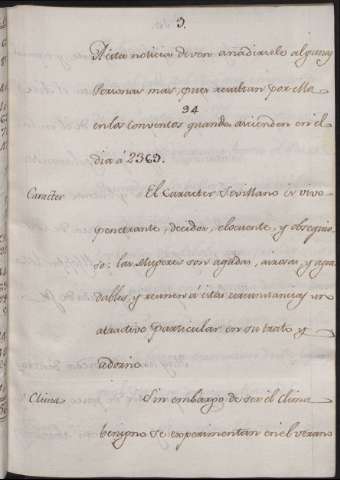 9.
A esta noticia deven añadirsele algunas
Personas mas, pues reciben por ella
94
en los conventos quando ascienden en el
dia á 2369.
Caracter El Caracter Sevillano es vivo
penetrante, decidor, elocuente, y obsequio-
so: las Mugeres son agudas, airosas, y agra
dables, y reunen á estas circunstancias un
atractivo particular en su trato, y
adorno.
Clima Sin embargo de ser él clima
benigno se experimentan en el verano